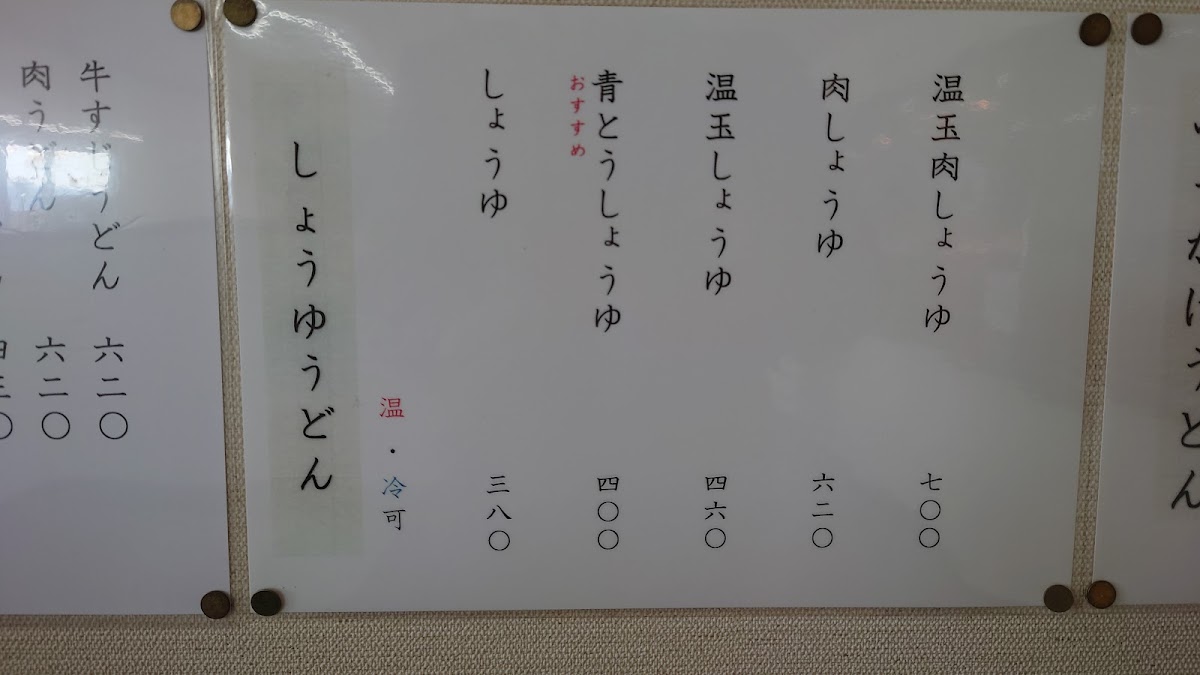 肉うどん 六二〇
牛すじうどん 六二〇
しょうゆうどん
温・冷可
しょうゆ 三八〇
おすすめ
青とうしょうゆ 四〇〇
温玉しょうゆ 四六〇
肉しょうゆ 六二〇
温玉肉しょうゆ 七〇〇